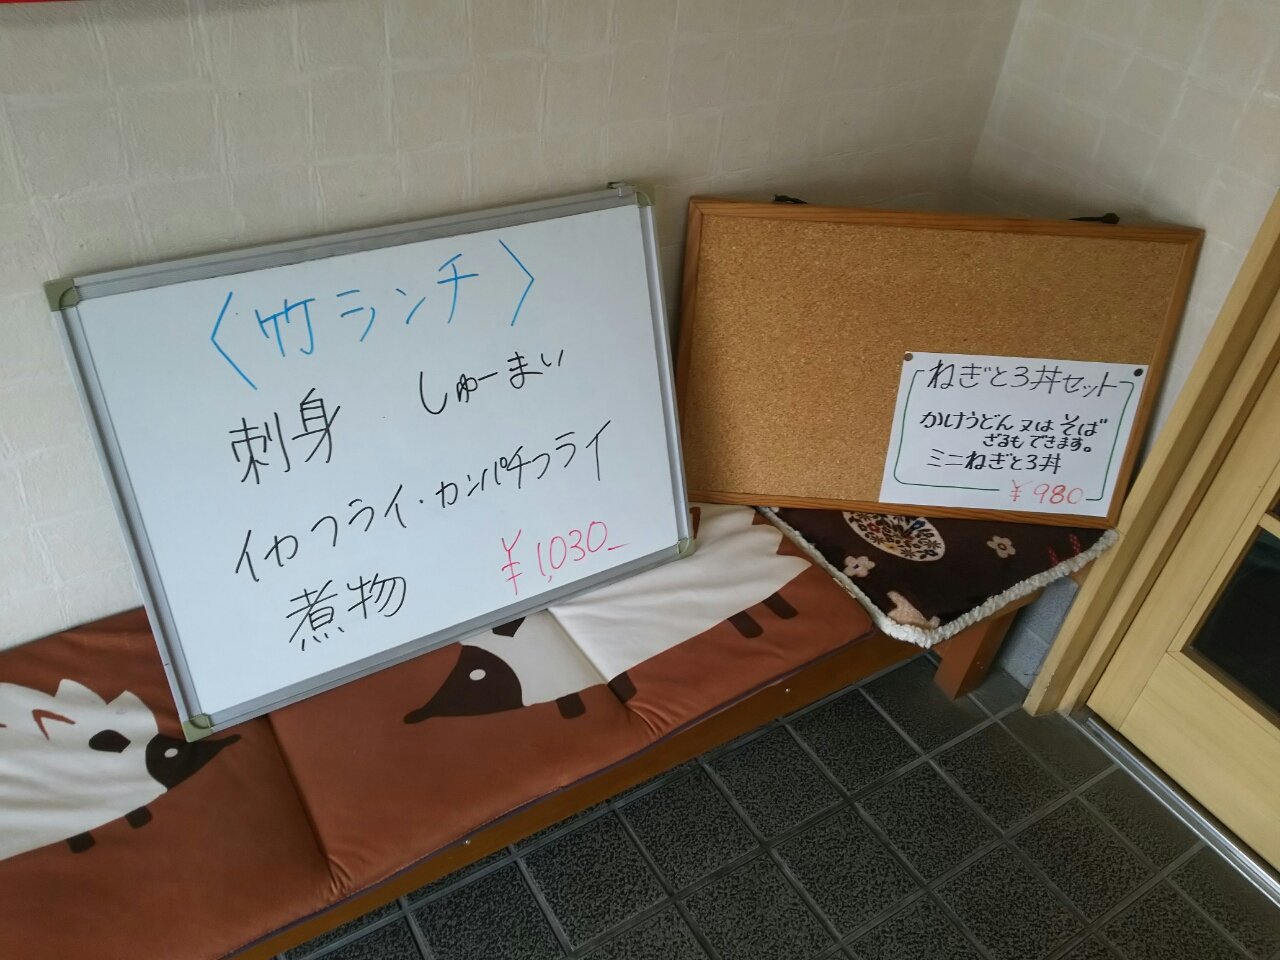 〈竹ランチ〉
刺身 しゅーまい
イカフライ・カンパチフライ
煮物 ¥1,030_
ねぎとろ丼セット
かけうどん又はそば
ざるもできます。
ミニねぎとろ丼
¥980